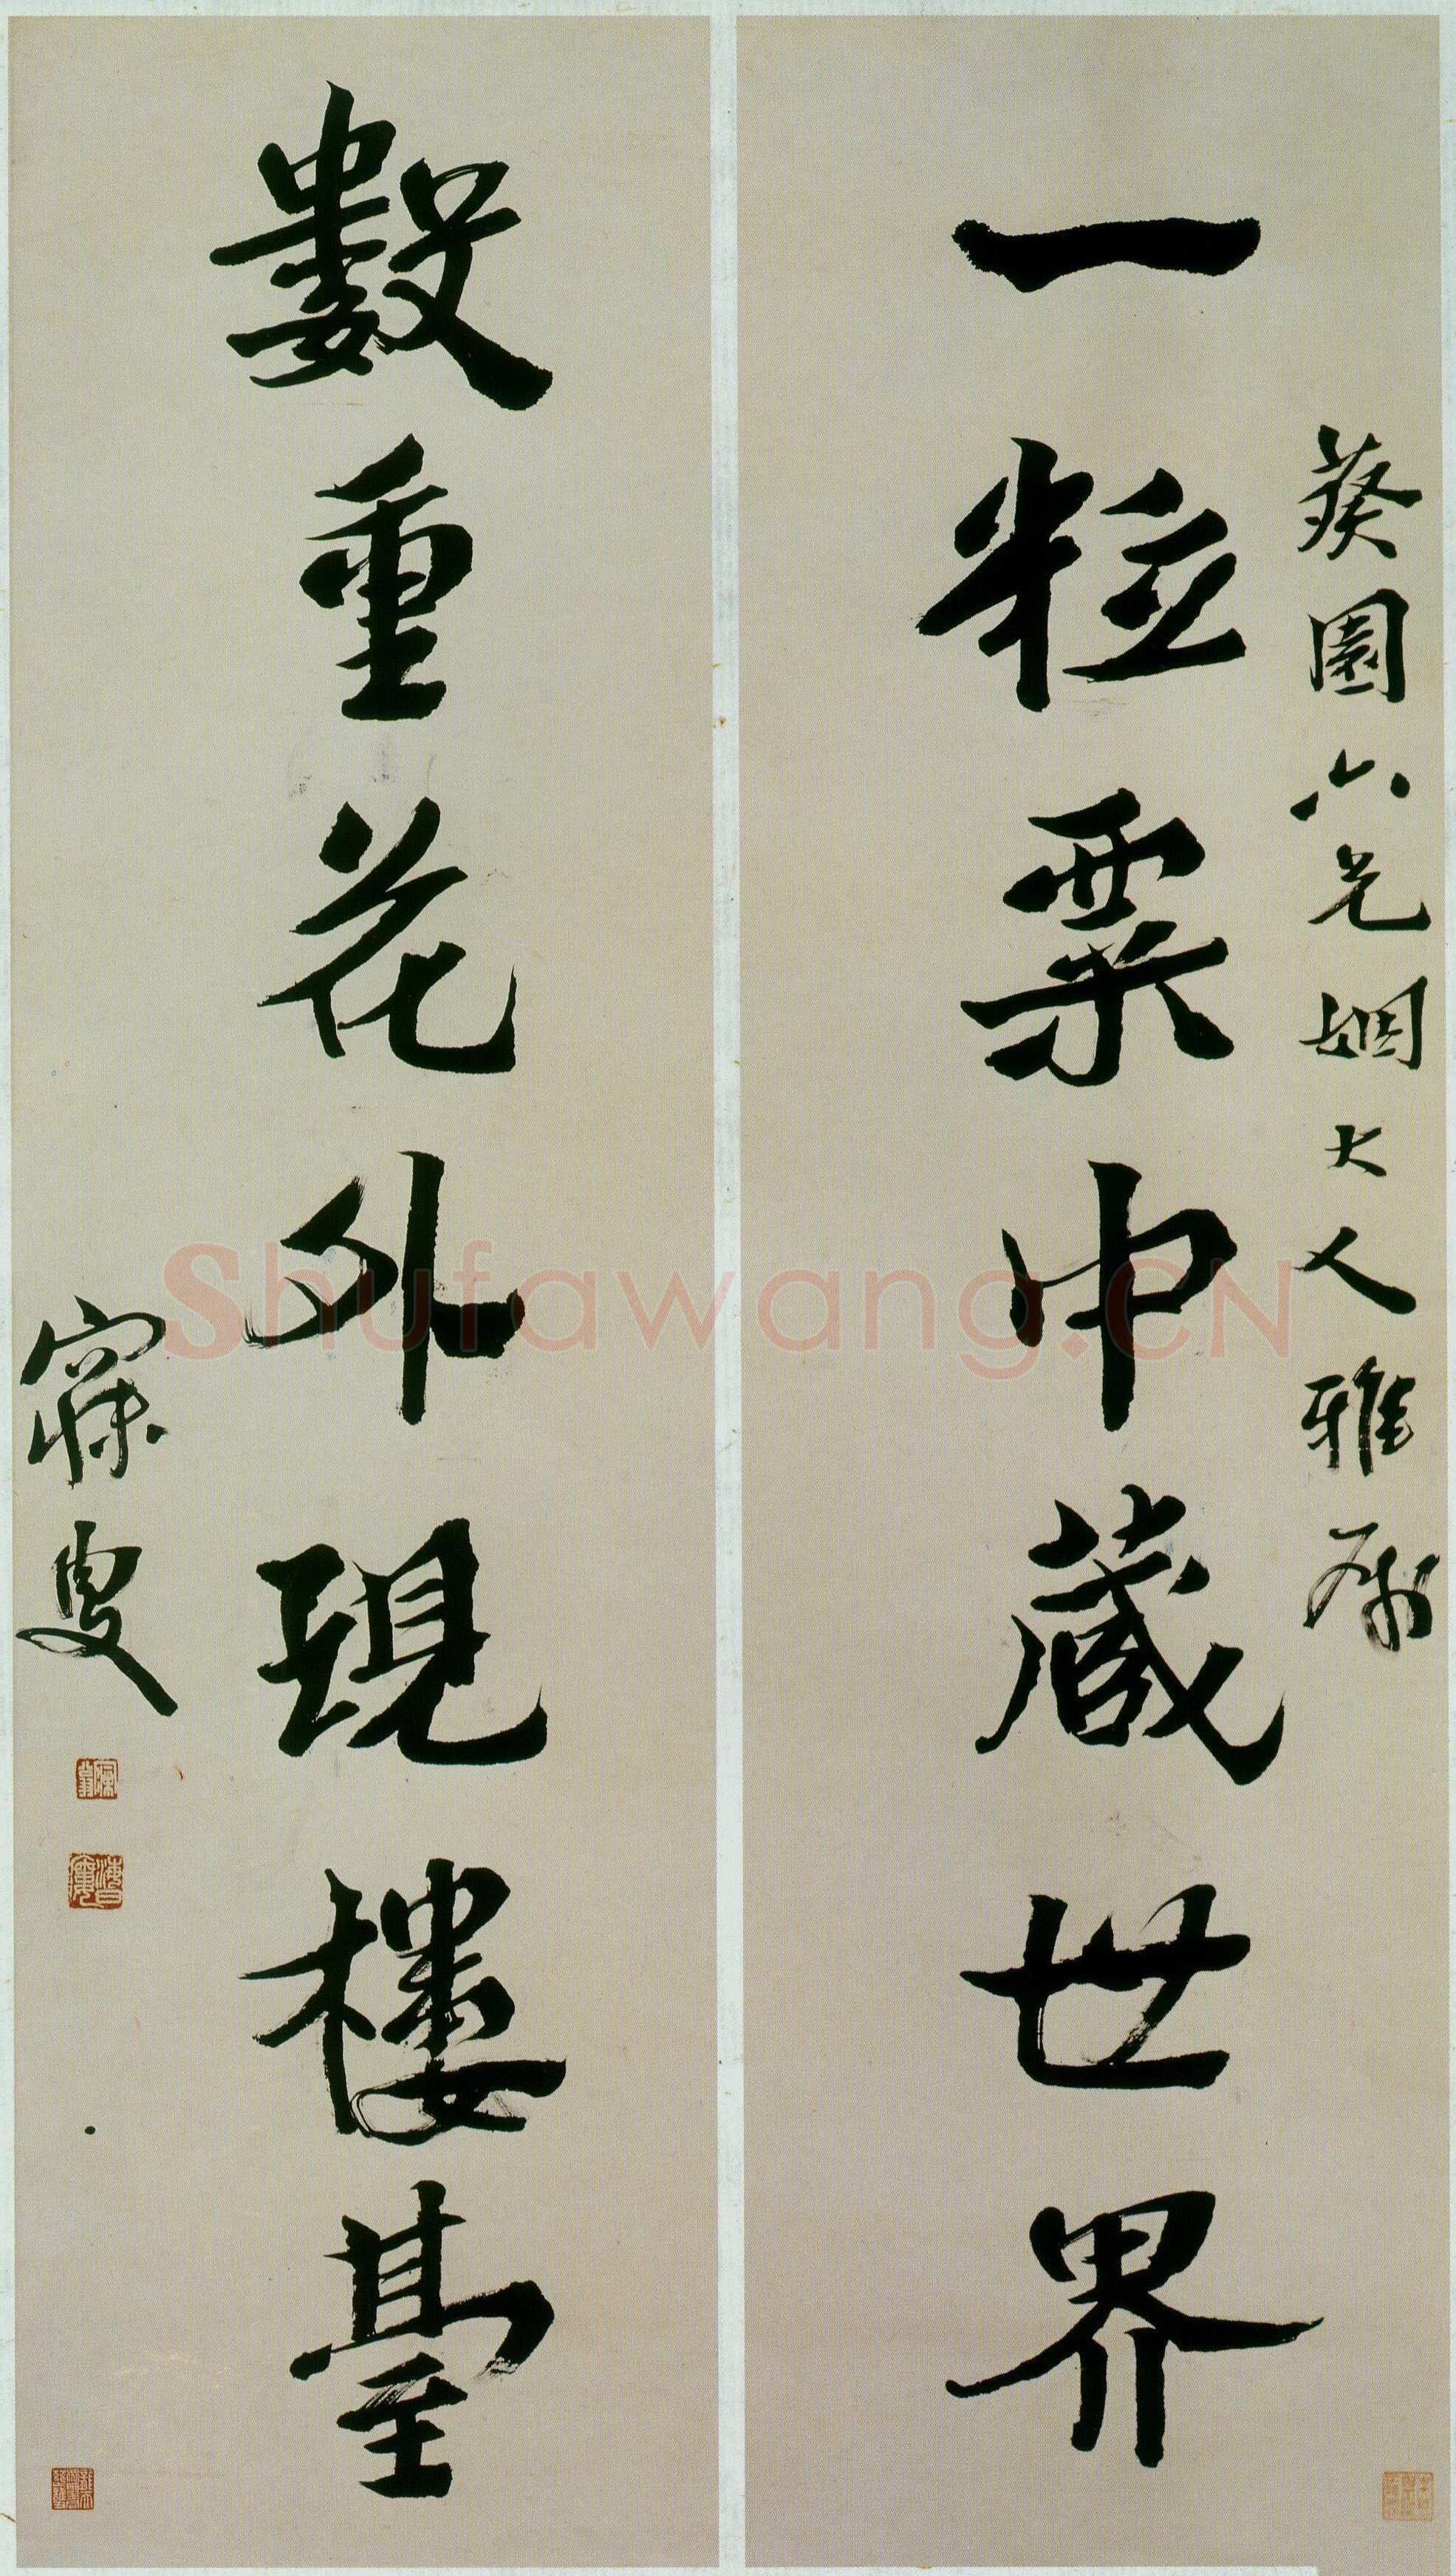 葵園六兄姻大人雅屬
一粒粟中藏世界
數重花外現樓臺
寐叟
Shufawang.CN